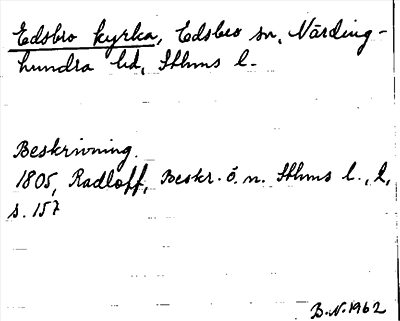 Edsbro kyrka, Edsbro sn, Närding-
hundra hd, Sthms l.
Beskrivning.
1805, Radloff, Beskr. ö. n. Sthms l., 2,
s. 157
B.N. 1962